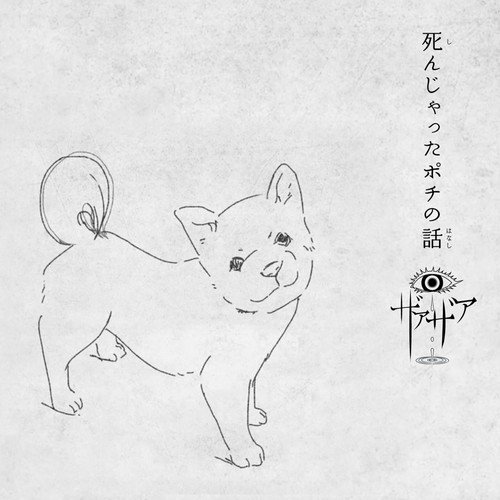 死んじゃったポチの話
し
はなし
ザアザア